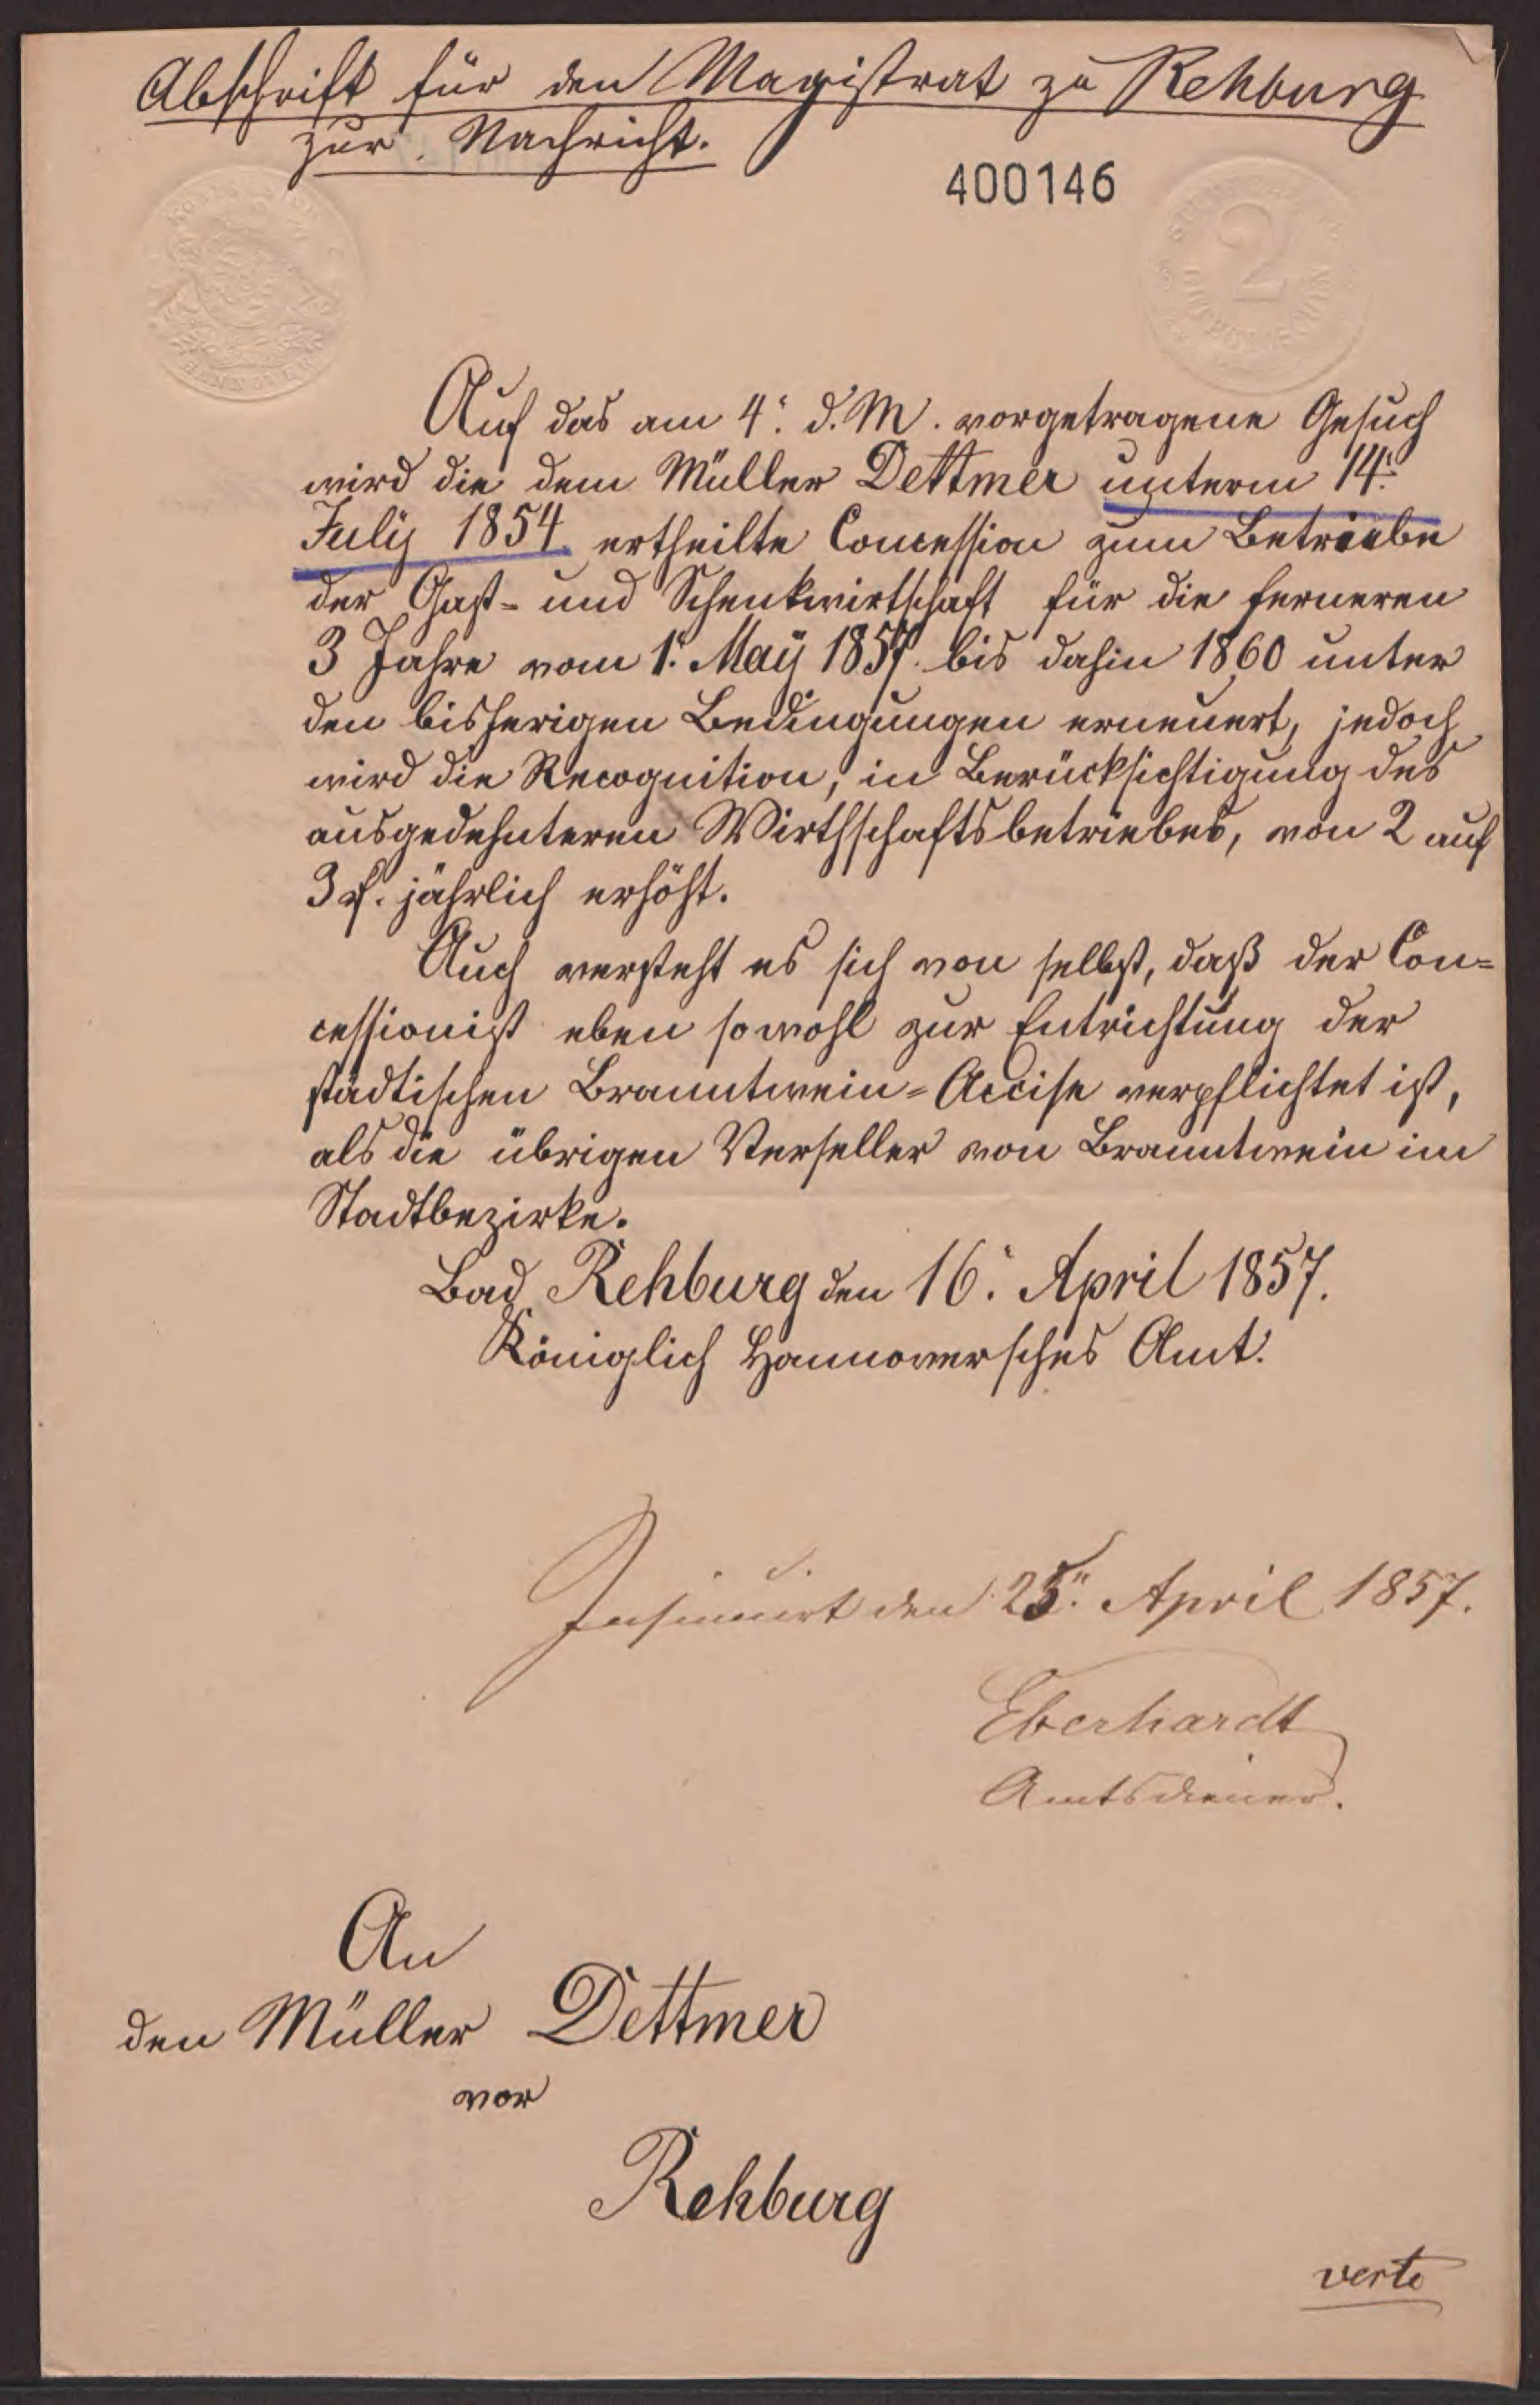 Abschrift für den Magistrat zu Rehburg
zur Nachricht.
400146
2
HANNOVER
Auf das am 4. d. M. vorgetragene Gesuch
wird die dem Müller Dettmer unterm 14.
July 1854 ertheilte Concession zum Betriebe
der Gast- und Schenkwirtschaft für die ferneren
3 Jahre vom 1. May 1857. bis dahin 1860 unter
den bisherigen Bedingungen erneuert, jedoch
wird die Recognition, in Berücksichtigung des
ausgedehnteren Wirthschaftsbetriebes, von 2 auf
3 jährlich erhöht.
Auch versteht es sich von selbst, daß der Con=
cessionist eben sowohl zur Entrichtung der
städtischen Branntwein=Accise verpflichtet ist,
als die übrigen Verseller von Branntwein im
Stadtbezirke.
Bad Rehburg den 16. April 1857.
Königlich Hannoversches Amt.
Insinuirt den 25. April 1857.
Eberhardt
Amtsdiener.
An
den Müller Dettmer
vor
Rehburg
verte